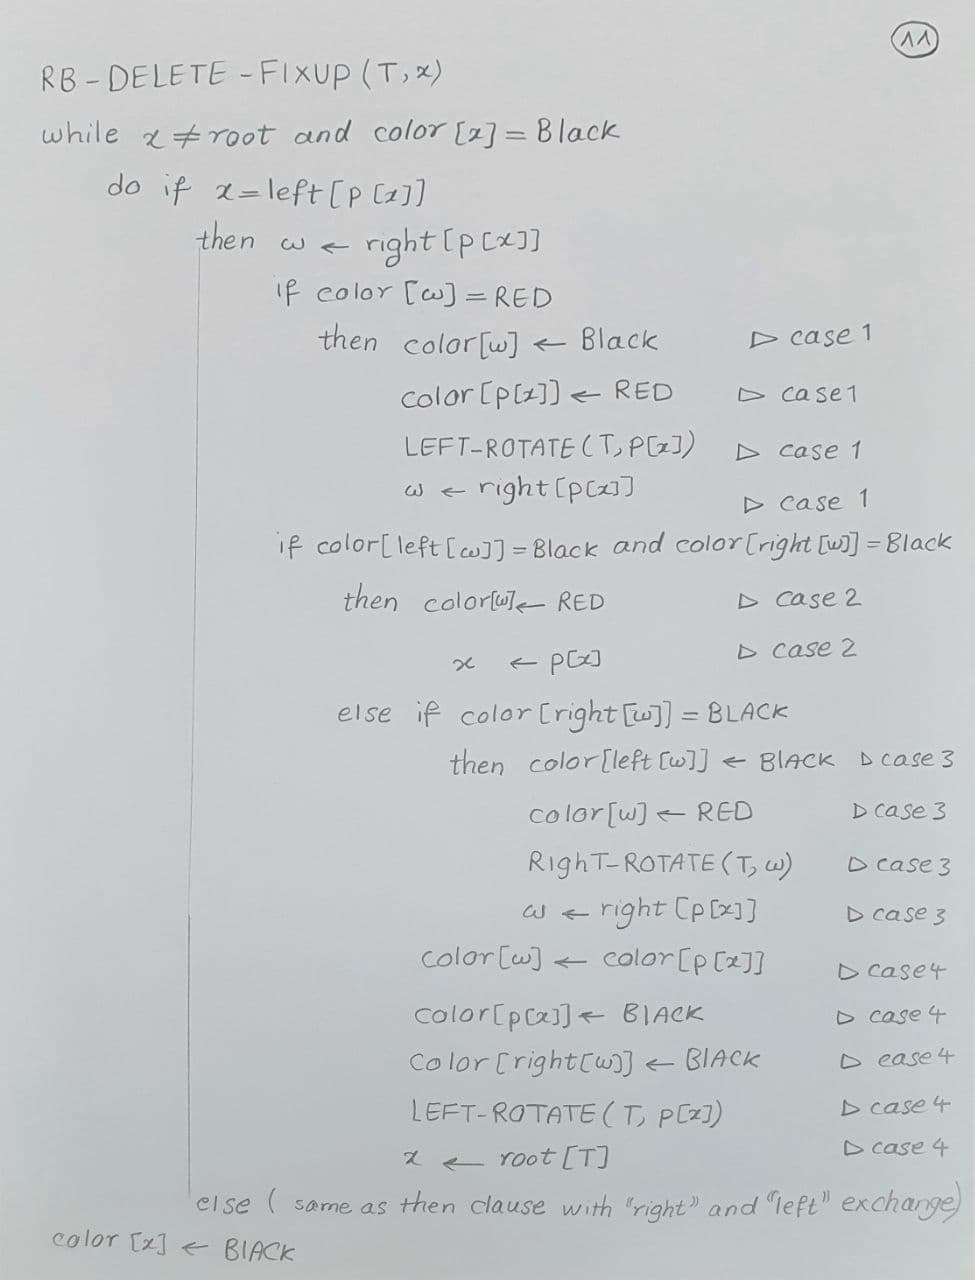 11
RB-DELETE-FIXUP(T,x)
while x ≠ root and color[x] = Black
do if x = left[p[x]]
then w ← right[p[x]]
if color[w] = RED
then color[w] ← Black ▷ case 1
color[p[x]] ← RED ▷ case1
LEFT-ROTATE(T,P[x]) ▷ case 1
w ← right[p[x]] ▷ case 1
if color[left[w]] = Black and color[right[w]] = Black
then color[w] ← RED ▷ case 2
x ← p[x] ▷ case 2
else if color[right[w]] = BLACK
then color[left[w]] ← BlACK ▷ case 3
color[w] ← RED ▷ case 3
RIghT-ROTATE(T, w) ▷ case 3
w ← right[p[x]] ▷ case 3
color[w] ← color[p[x]] ▷ case4
color[p[x]] ← BlACK ▷ case 4
Color[right[w]] ← BlACK ▷ case 4
LEFT-ROTATE(T, p[x]) ▷ case 4
x ← root[T] ▷ case 4
else ( same as then clause with "right" and "left" exchange)
color[x] ← BlACK